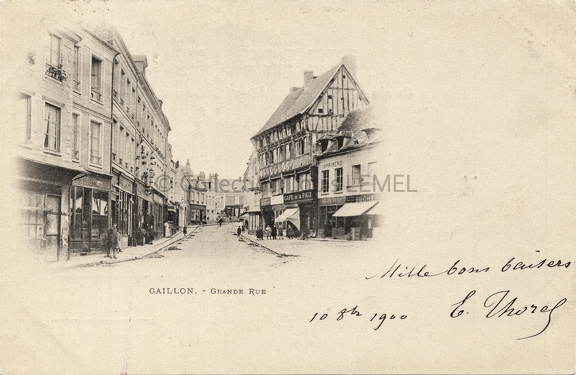 © Collection Louis LEMEL
IMPRIMERIE
CAFÉ de la PAIX
GAILLON. - GRANDE RUE
Mille bons baisers
10 8bre 1900
E. Thorel